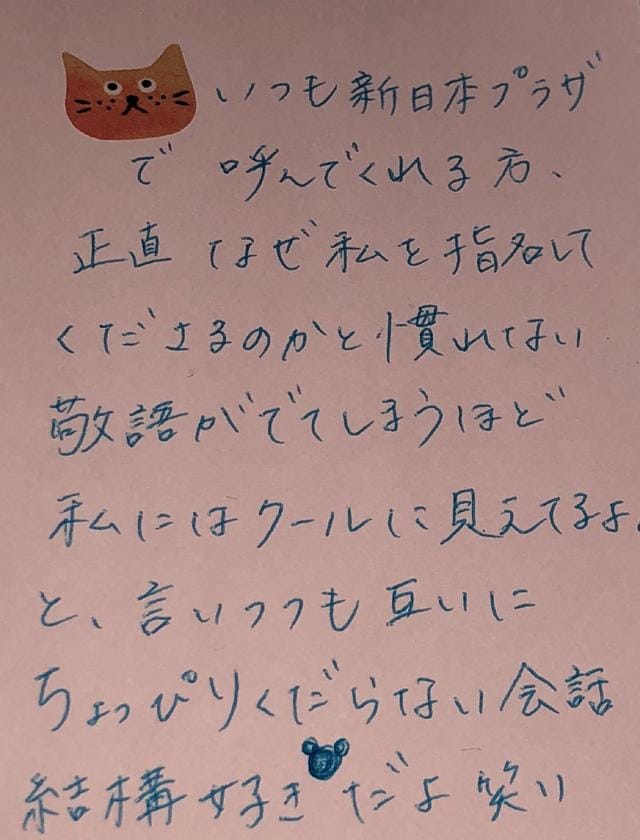 いつも新日本プラザ
で 呼んでくれる方、
正直 なぜ私を指名して
くださるのかと慣れない
敬語がでてしまうほど
私にはクールに見えてるよ。
と、言いつつも互いに
ちょっぴりくだらない会話
結構好きだよ笑い